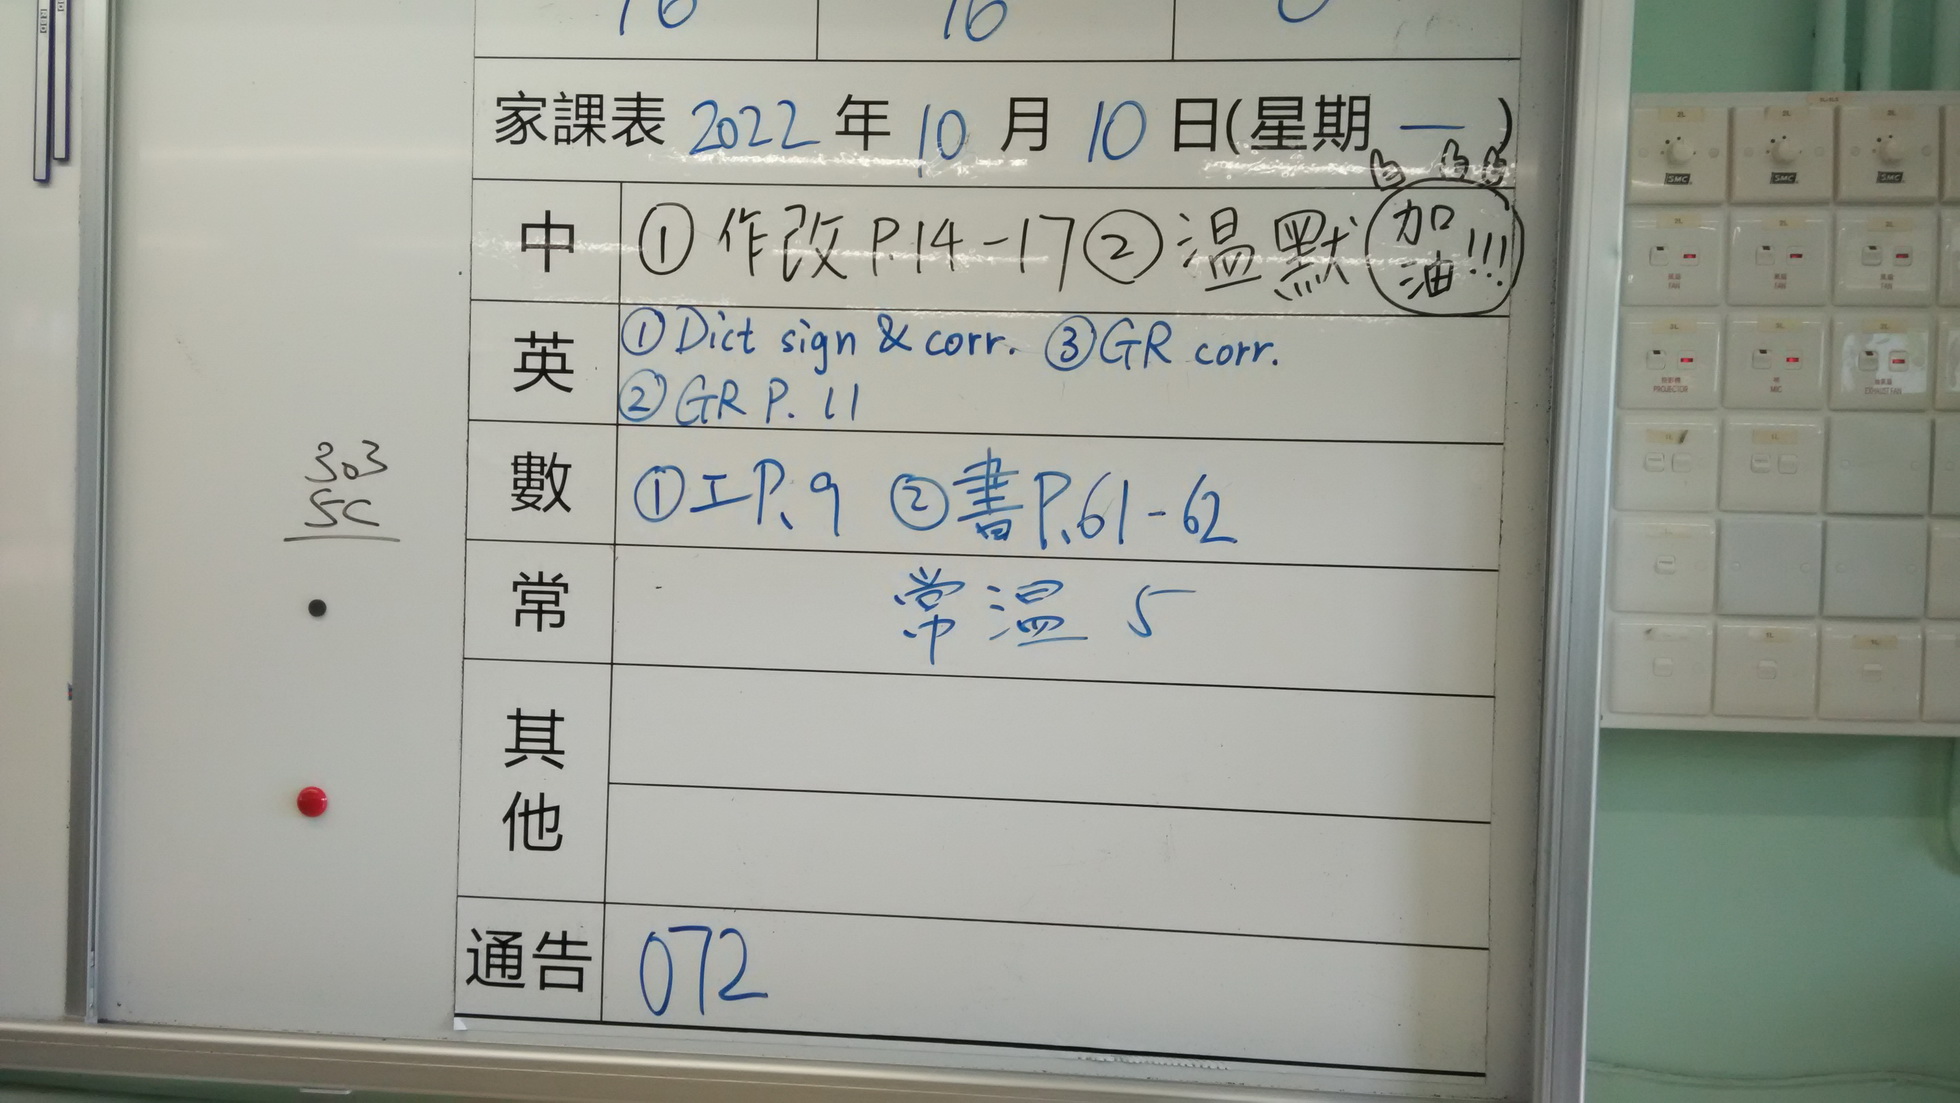 16 16 0
家課表 2022 年 10 月 10 日(星期 一 )
中 ① 作改 P.14-17 ② 溫默 加油!!!
英 ① Dict sign & corr. ③ GR corr.
② GR P. 11
數 ① 工P.9 ② 書P.61-62
常 常溫 5
其他
通告 072
303
5C
SMC SMC SMC
FAN FAN FAN
PROJECTOR MIC EXHAUST FAN